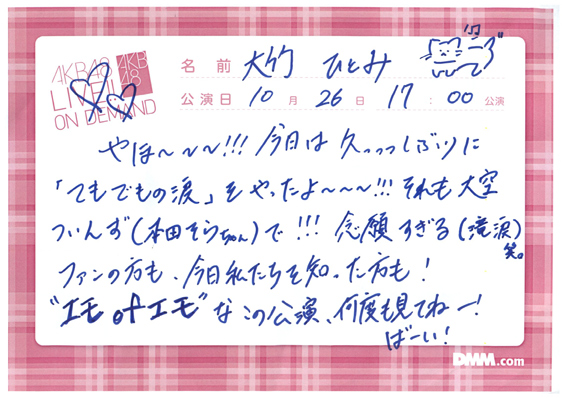 AKB48
LIVE!!
ON DEMAND
AKB
48
名前 大竹 ひとみ
公演日 10月26日 17:00公演
やほ〜〜〜!!! 今日は久っっっしぶりに
「てもでもの涙」をやったよ〜〜〜!!! それも大空
ついんず(本田そらちゃん)で!!! 念願すぎる(滝涙)笑。
ファンの方も、今日私たちを知った方も!
"エモofエモ"なこの公演、何度も見てねー!
ばーい!
DMM.com